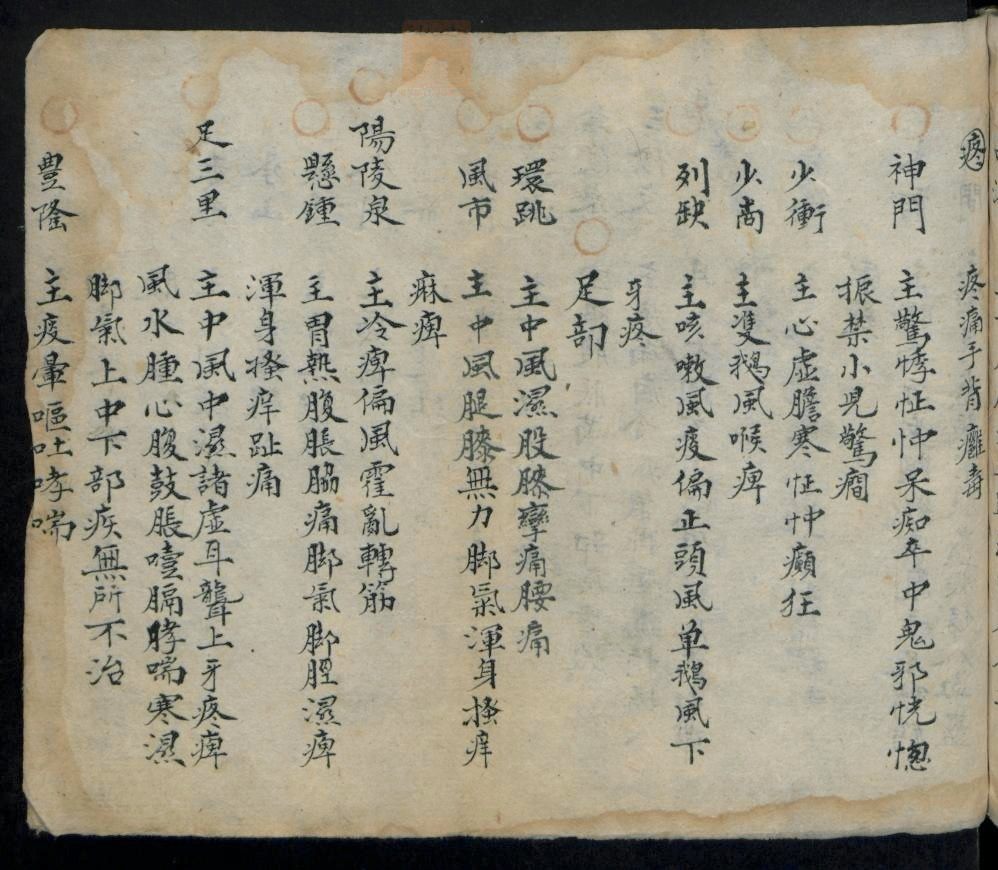 疼痛手背癰毒
神門 主驚悸怔忡呆痴卒中鬼邪恍惚
振禁小兒驚癇
少衝 主心虛膽寒怔忡癲狂
少商 主雙鵝風喉痺
列缺 主咳嗽風痰偏正頭風单鵝風下
牙疼
足部
環跳 主中風濕股膝攣痛腰痛
風市 主中風腿膝無力脚氣渾身搔痒
麻痺
陽陵泉 主冷痺偏風霍亂轉筋
懸鍾 主胃熱腹脹脇痛脚氣脚脛濕痺
渾身搔痒趾痛
足三里 主中風中濕諸虛耳聾上牙疼痺
風水腫心腹鼓脹噎膈哮喘寒濕
脚氣上中下部疾無所不治
豊隆 主痰暈嘔吐哮喘